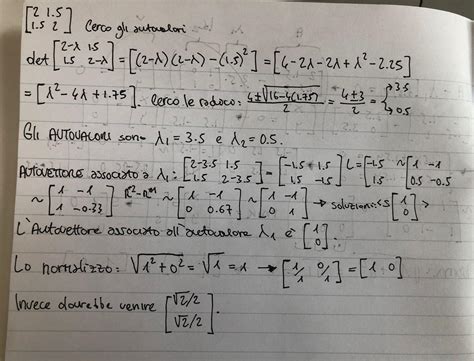 [2 1.5
1.5 2] Cerco gli autovalori
det [2-λ 1.5
1.5 2-λ] = [(2-λ)(2-λ) - (1.5)²] = [4-2λ-2λ+λ²-2.25]
= [λ²-4λ+1.75]. Cerco le radici: (4±√16-4(1.75))/2 = (4±3)/2 = 3.5
0.5
Gli AUTOVALORI sono λ₁=3.5 e λ₂=0.5.
AUTOVETTORE associato a λ₁: [2-3.5 1.5
1.5 2-3.5] = [-1.5 +1.5
1.5 -1.5] [-1.5 ~ [1 -1
1.5 0.5 -0.5]
~ [1 -1
1 -0.33] ~ [1 -1
0 0.67] ~ [1 -1
0 1] → soluzioni: <s[1
0]>
L'Autovettore associato all'autovalore λ₁ è [1
0].
Lo normalizzo: √1²+0² = √1 = 1 → [1/1 0/1] = [1 0]
Invece dovrebbe venire [√2/2
√2/2].